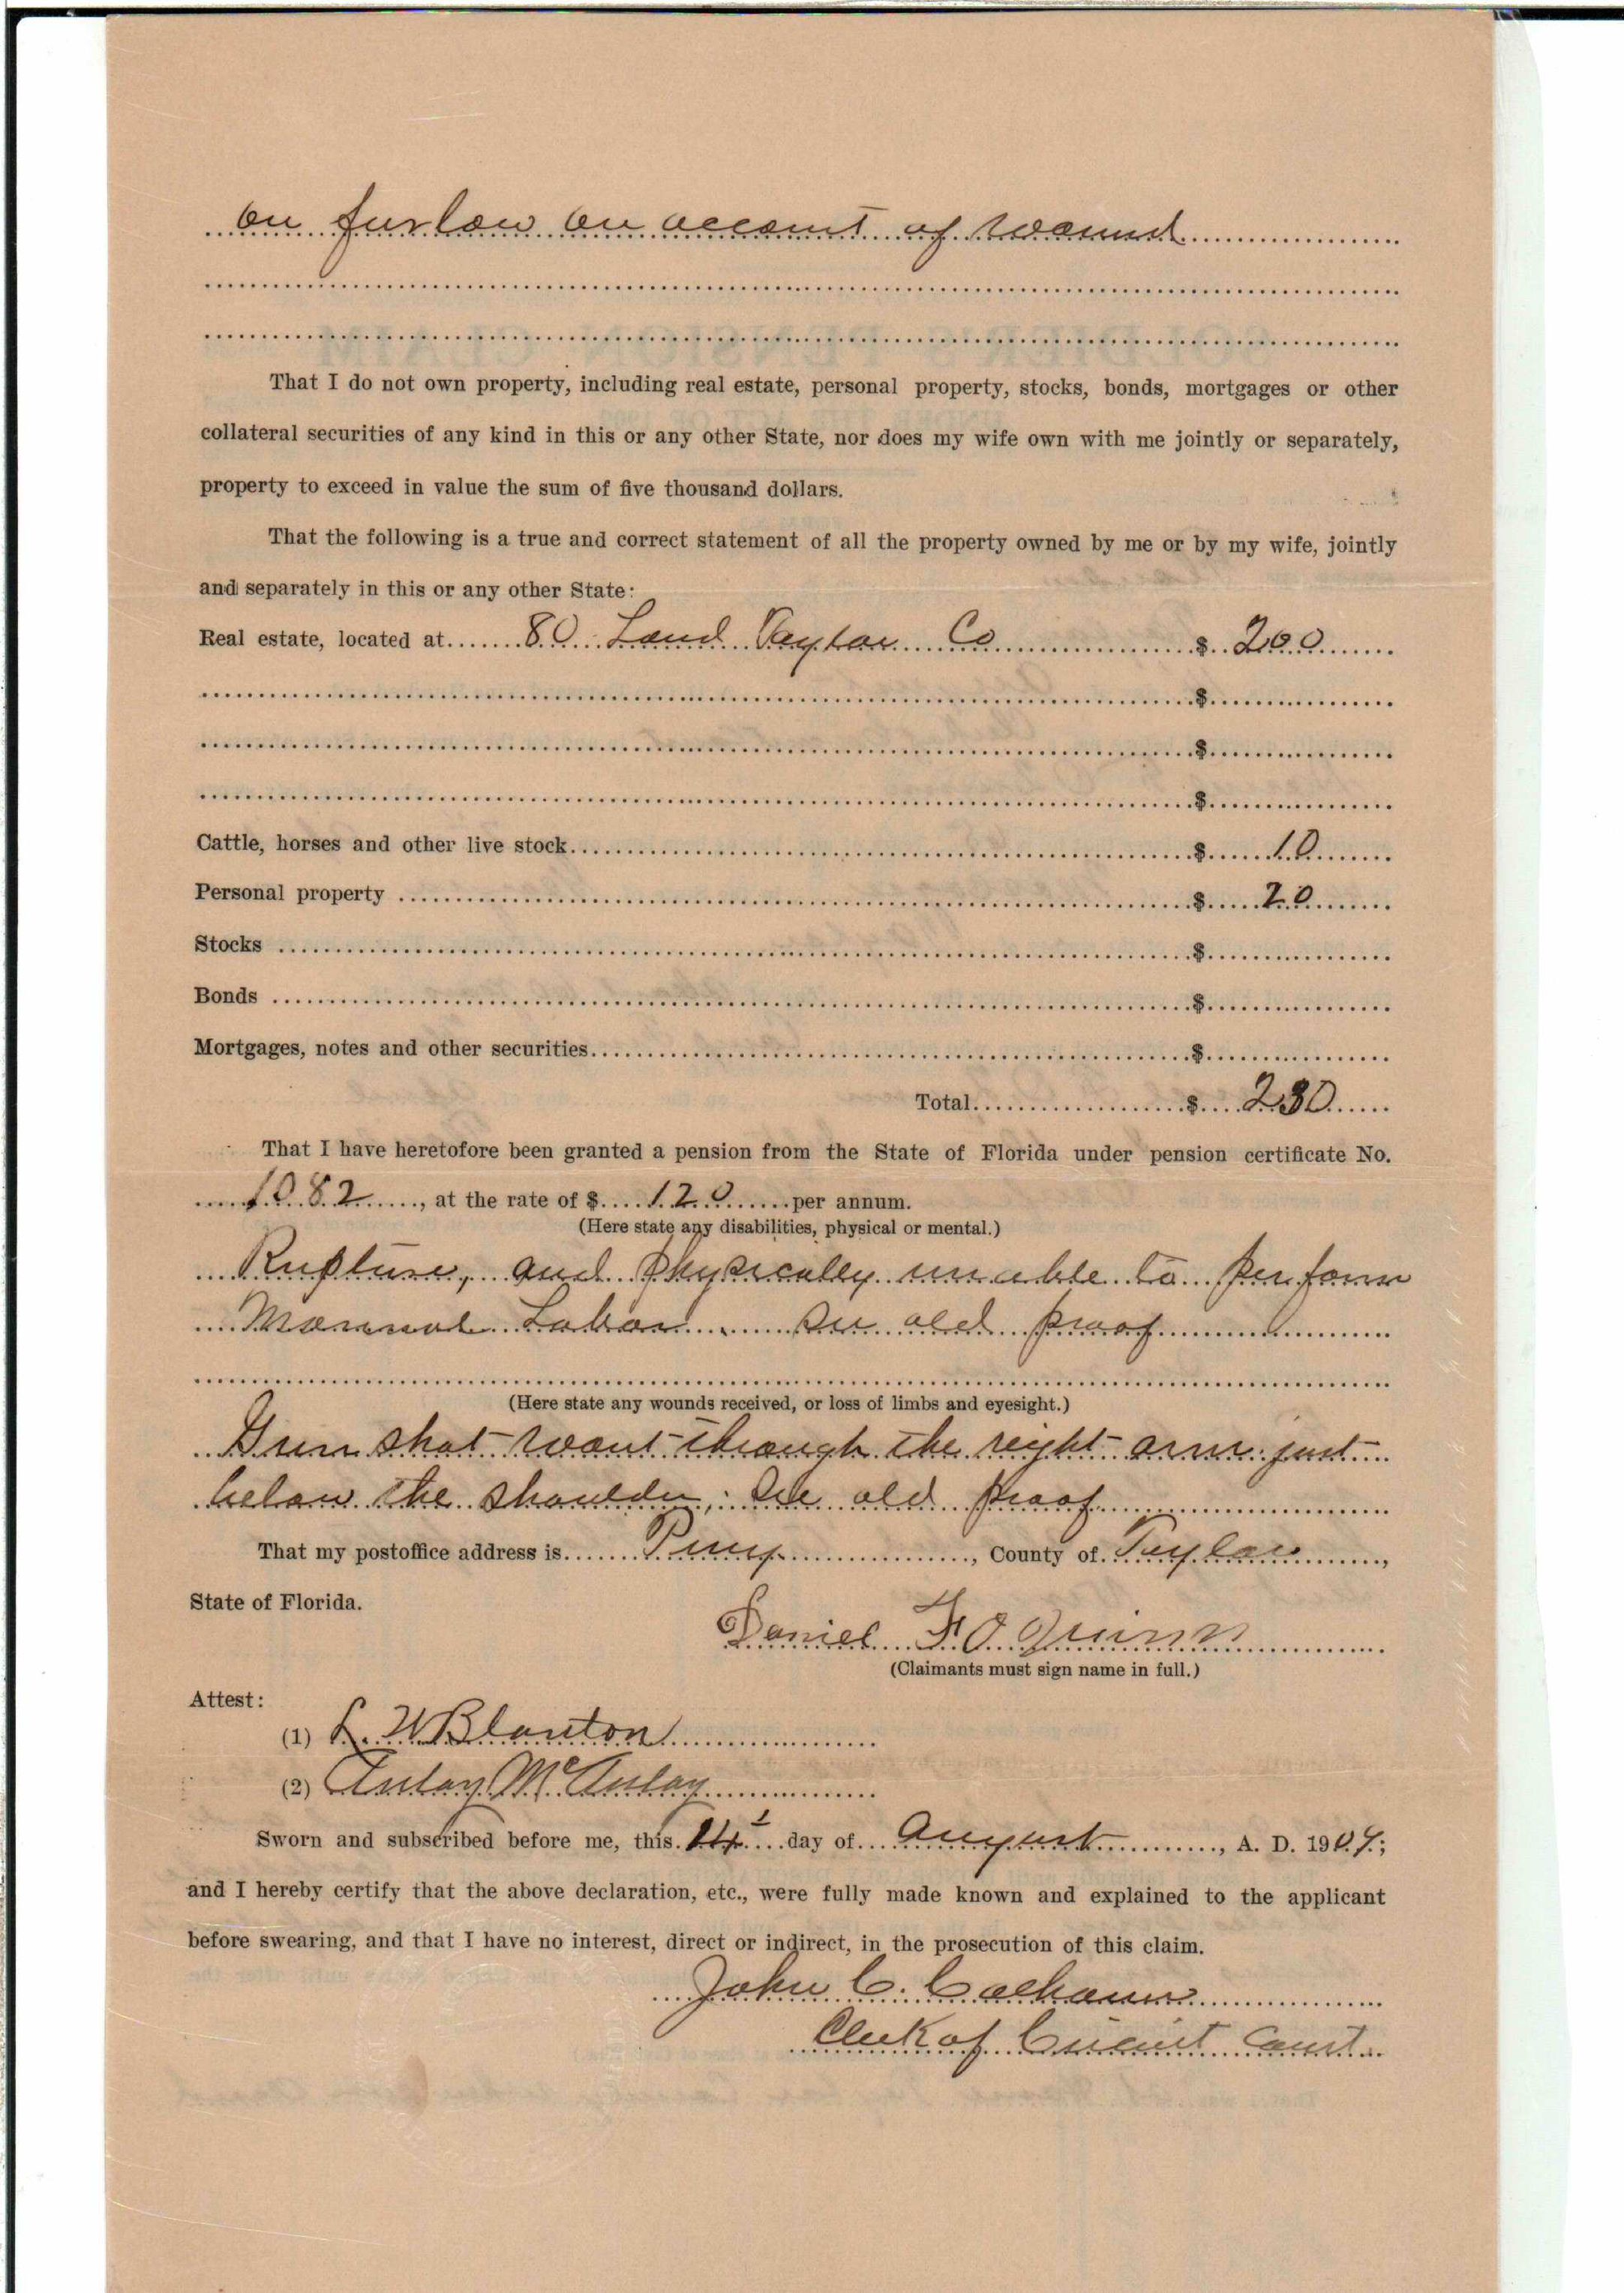 on furlow on account of wound
That I do not own property, including real estate, personal property, stocks, bonds, mortgages or other
collateral securities of any kind in this or any other State, nor does my wife own with me jointly or separately,
property to exceed in value the sum of five thousand dollars.
That the following is a true and correct statement of all the property owned by me or by my wife, jointly
and separately in this or any other State:
Real estate, located at 80 Land Taylor Co $ 200
$
$
$
Cattle, horses and other live stock $ 10
Personal property $ 20
Stocks $
Bonds $
Mortgages, notes and other securities $
Total $ 230
That I have heretofore been granted a pension from the State of Florida under pension certificate No.
1082, at the rate of $ 120 per annum.
(Here state any disabilities, physical or mental.)
Rupture, and physically unable to perform
Manual Labor see old proof
(Here state any wounds received, or loss of limbs and eyesight.)
Gun shot wount through the right arm just
below the shoulder; See old proof
That my postoffice address is Perry, County of Taylor,
State of Florida.
Daniel F O Quinn
(Claimants must sign name in full.)
Attest:
(1) L. W Blanton
(2) Aulay McAulay
Sworn and subscribed before me, this 14 day of August, A. D. 1907;
and I hereby certify that the above declaration, etc., were fully made known and explained to the applicant
before swearing, and that I have no interest, direct or indirect, in the prosecution of this claim.
John C. Calhoun
Clerk of Circuit Court